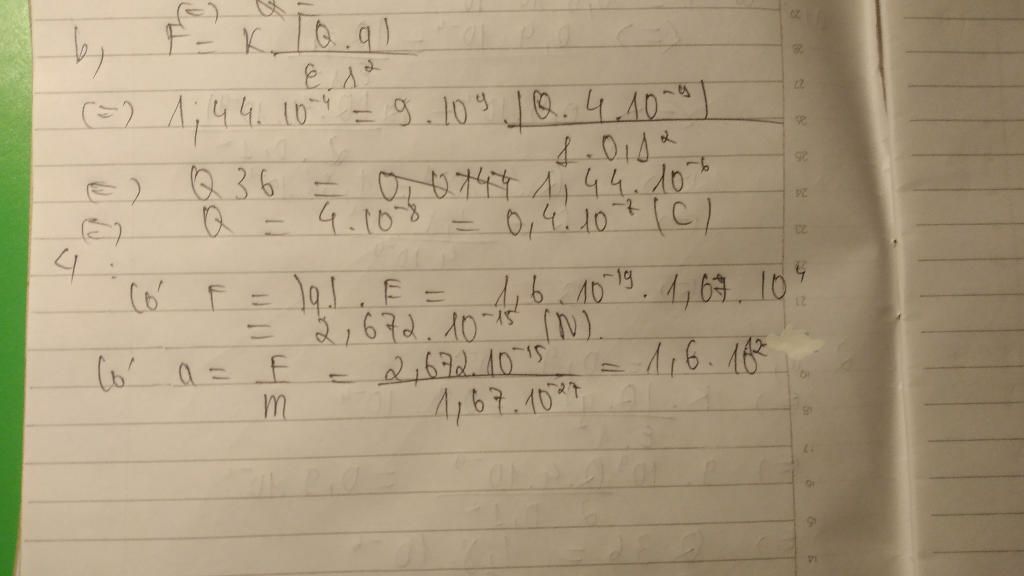 (=) Q =
b, F = K. |Q.q|
ε.r²
(=) 1,44.10⁻⁴ = 9.10⁹.|Q.4.10⁻⁹|
1.0,1²
(=) Q 36 = 1,44.10⁻⁶
(=) Q = 4.10⁻⁸ = 0,4.10⁻⁷ (C)
4 :
Có F = |q|.E = 1,6.10⁻¹⁹.1,67.10⁴
= 2,672.10⁻¹⁵ (N).
Có a = F = 2,672.10⁻¹⁵ = 1,6.10¹²
m 1,67.10⁻²⁷